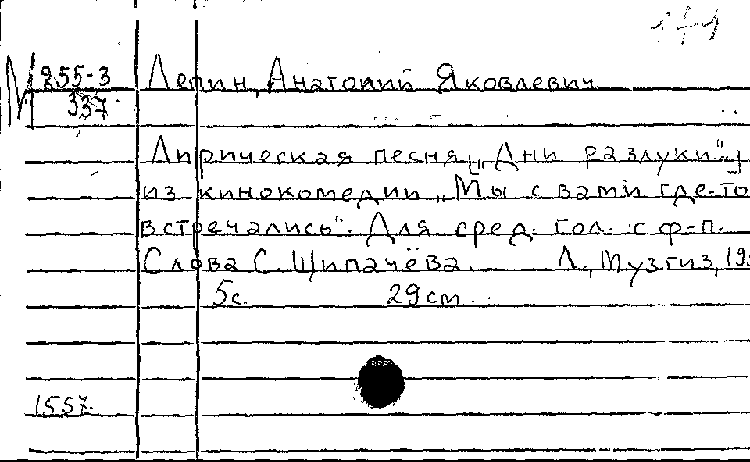 1+1
М 255-3
337
Лепин, Анатолий Яковлевич
Лирическая песня „Дни разлуки"
из кинокомедии „Мы с вами где-то
встречались". Для сред. гол. с ф-п.
Слова С. Щипачёва. Л., Музгиз, 195
5с. 29 см
1557.